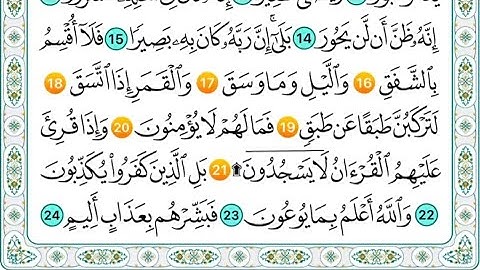 إِنَّهُۥ ظَنَّ أَن لَّن يَحُورَ 14 بَلَىٰٓ إِنَّ رَبَّهُۥ كَانَ بِهِۦ بَصِيرًا 15 فَلَآ أُقْسِمُ
بِٱلشَّفَقِ 16 وَٱلَّيْلِ وَمَا وَسَقَ 17 وَٱلْقَمَرِ إِذَا ٱتَّسَقَ 18
لَتَرْكَبُنَّ طَبَقًا عَن طَبَقٍ 19 فَمَا لَهُمْ لَا يُؤْمِنُونَ 20 وَإِذَا قُرِئَ
عَلَيْهِمُ ٱلْقُرْءَانُ لَا يَسْجُدُونَ ۩ 21 بَلِ ٱلَّذِينَ كَفَرُوا۟ يُكَذِّبُونَ
22 وَٱللَّهُ أَعْلَمُ بِمَا يُوعُونَ 23 فَبَشِّرْهُم بِعَذَابٍ أَلِيمٍ 24